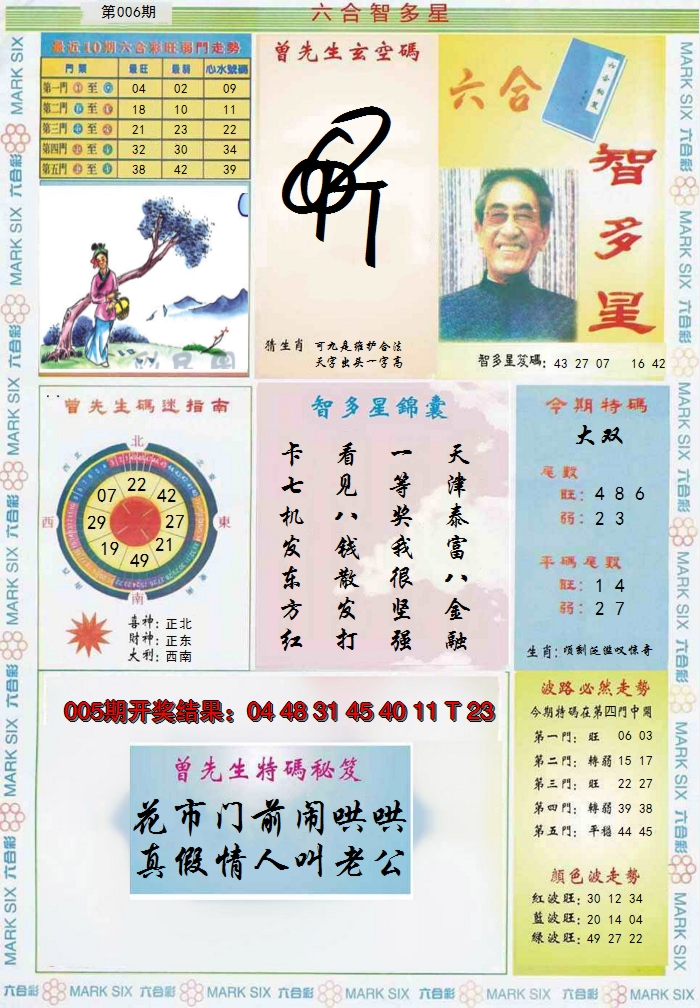 第006期
六合智多星
最近10期六合彩旺弱門走勢
門類 最旺 最弱 心水號碼
第一門 至 04 02 09
第二門 至 18 10 11
第三門 至 21 23 22
第四門 至 32 30 34
第五門 至 38 42 39
曾先生玄空碼
猜生肖 可九是维护合法
天字出头一字高
六合
智多星
智多星笈碼: 43 27 07 16 42
曾先生碼迷指南
北
22
07 42
西 29 27 東
19 21
49
南
喜神: 正北
財神: 正东
大利: 西南
智多星錦囊
天津泰富八金融
一等奖我很坚强
看见八钱散发打
卡七机发东方红
今期特碼
大双
尾數
旺: 4 8 6
弱: 2 3
平碼尾數
旺: 1 4
弱: 2 7
生肖: 顺制泛滥叹惊奇
005期开奖结果: 04 48 31 45 40 11 T 23
曾先生特碼秘笈
花市门前闹哄哄
真假情人叫老公
波路必然走勢
今期特碼在第四門中開
第一門: 旺 06 03
第二門: 轉弱 15 17
第三門: 旺 22 27
第四門: 轉弱 39 38
第五門: 平穩 44 45
顏色波走勢
紅波旺: 30 12 34
藍波旺: 20 14 04
綠波旺: 49 27 22
MARK SIX 六合彩 MARK SIX 六合彩 MARK SIX 六合彩 MARK SIX 六合彩